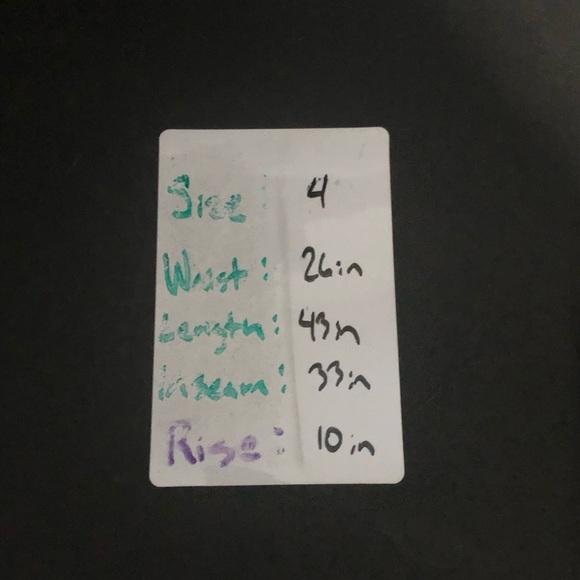 Size: 4
Waist: 26in
Length: 43in
Inseam: 33in
Rise: 10in